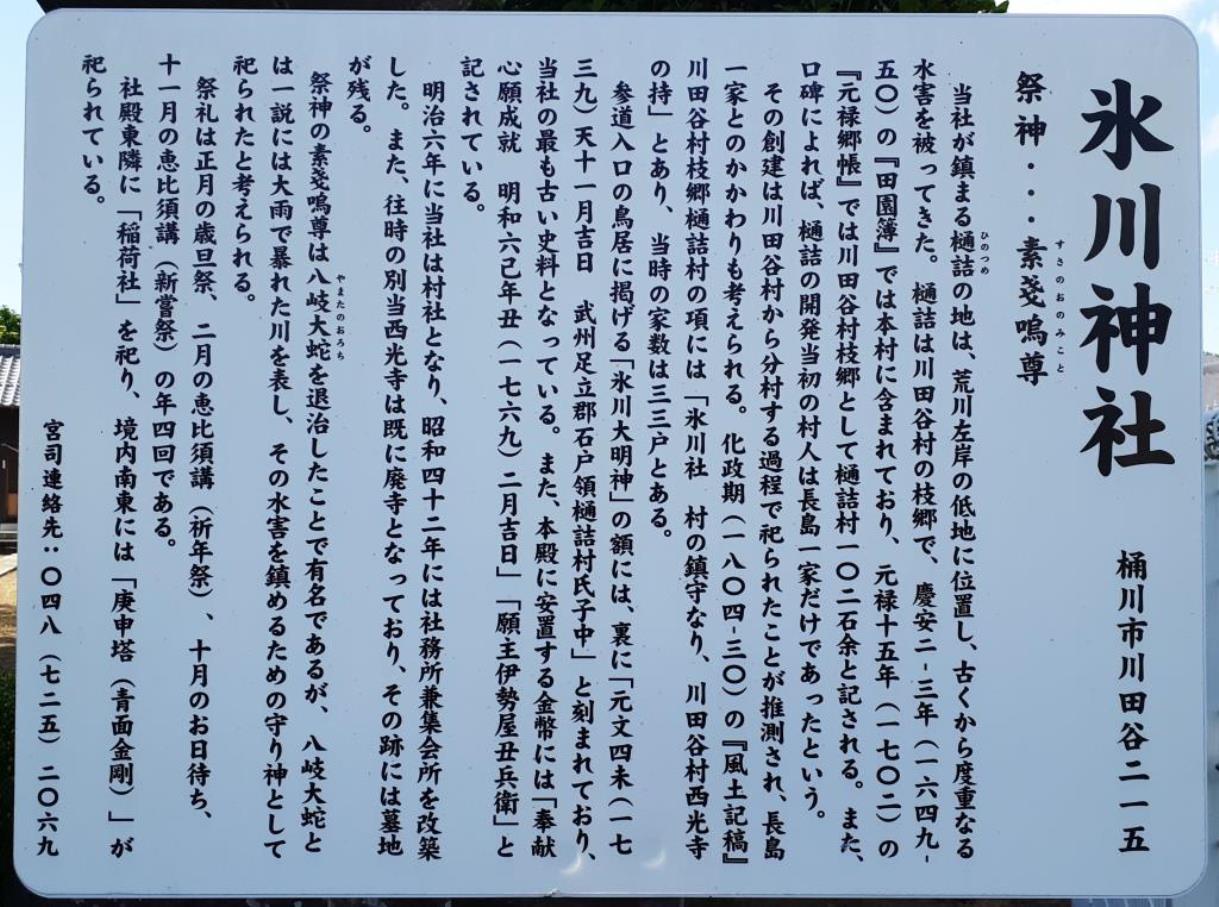 氷川神社 桶川市川田谷二一五
祭神・・・素戔嗚尊
すさのおのみこと
当社が鎮まる樋詰の地は、荒川左岸の低地に位置し、古くから度重なる
ひのつめ
水害を被ってきた。樋詰は川田谷村の枝郷で、慶安二-三年(一六四九-
五〇)の『田園簿』では本村に含まれており、元禄十五年(一七〇二)の
『元禄郷帳』では川田谷村枝郷として樋詰村一〇二石余と記される。また、
口碑によれば、樋詰の開発当初の村人は長島一家だけであったという。
その創建は川田谷村から分村する過程で祀られたことが推測され、長島
一家とのかかわりも考えられる。化政期(一八〇四-三〇)の『風土記稿』
川田谷村枝郷樋詰村の項には「氷川社 村の鎮守なり、川田谷村西光寺
の持」とあり、当時の家数は三三戸とある。
参道入口の鳥居に掲げる「氷川大明神」の額には、裏に「元文四未(一七
三九)天十一月吉日 武州足立郡石戸領樋詰村氏子中」と刻まれており、
当社の最も古い史料となっている。また、本殿に安置する金幣には「奉献
心願成就 明和六己年丑(一七六九)二月吉日」「願主伊勢屋丑兵衛」と
記されている。
明治六年に当社は村社となり、昭和四十二年には社務所兼集会所を改築
した。また、往時の別当西光寺は既に廃寺となっており、その跡には墓地
が残る。
祭神の素戔嗚尊は八岐大蛇を退治したことで有名であるが、八岐大蛇と
やまたのおろち
は一説には大雨で暴れた川を表し、その水害を鎮めるための守り神として
祀られたと考えられる。
祭礼は正月の歳旦祭、二月の恵比須講(祈年祭)、十月のお日待ち、
十一月の恵比須講(新嘗祭)の年四回である。
社殿東隣に「稲荷社」を祀り、境内南東には「庚申塔(青面金剛)」が
祀られている。
宮司連絡先:〇四八(七二五)二〇六九